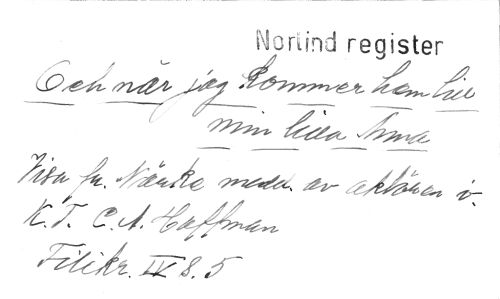 Norlind register
Och när jag kommer hem till
min lilla Anna
Visa fr. Närke medd. av aktören v.
K.T. C.A. Hoffman
Filikr. IV s. 5